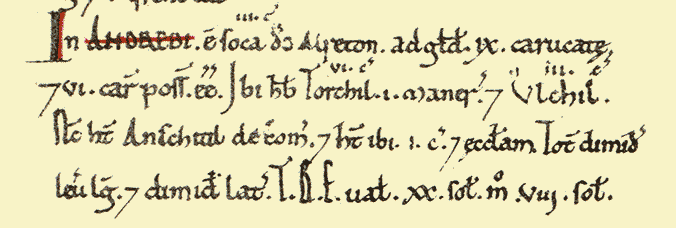 iii. c̃
In ANDREBI. ē soca de Alreton. ad gld̃. ix. carucatę,
vi. c̃ iii. c̃
⁊ vi. car̃ poss̃. eē. Ibi hb̃ Torchil .i. maner̃. ⁊ Vlchil.
Nc̃ ht̃ Anschitil de com̃. ⁊ ht̃ ibi .i. c̃. ⁊ ęccl̃am. Tot̃ dimid̃
leũ lg̃. ⁊ dimid̃ lat̃. T.R.E. ual̃. xx. sol̃. m̊ .viij. sol̃.